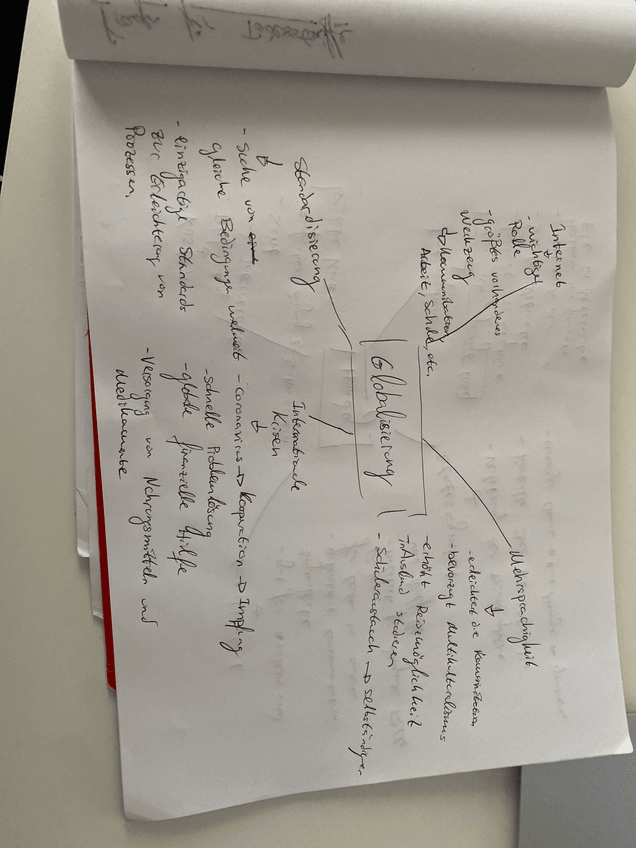 Globalisierung
Internet
- wichtige
Rolle
- größtes vorhandenes
Werkzeug
Kommunikation
Arbeit, Schule, etc.
Mehrsprachigkeit
- erleichtert die Kommunikation
- bevorzugt Multikulturalismus
- erhöht Reisemöglichkeit
- im Ausland studieren
- Schüleraustausch → selbständiger
Standardisierung
- Suche von
gleiche Bedingungen weltweit
- einzigartige Standards
zur Erleichterung von
Prozessen.
Internationale
Krisen
- Coronavirus → Kooperation → Impfung
- schnelle Problemlösung
- globale finanzielle Hilfe
- Versorgung von Nahrungsmitteln und
Medikamente